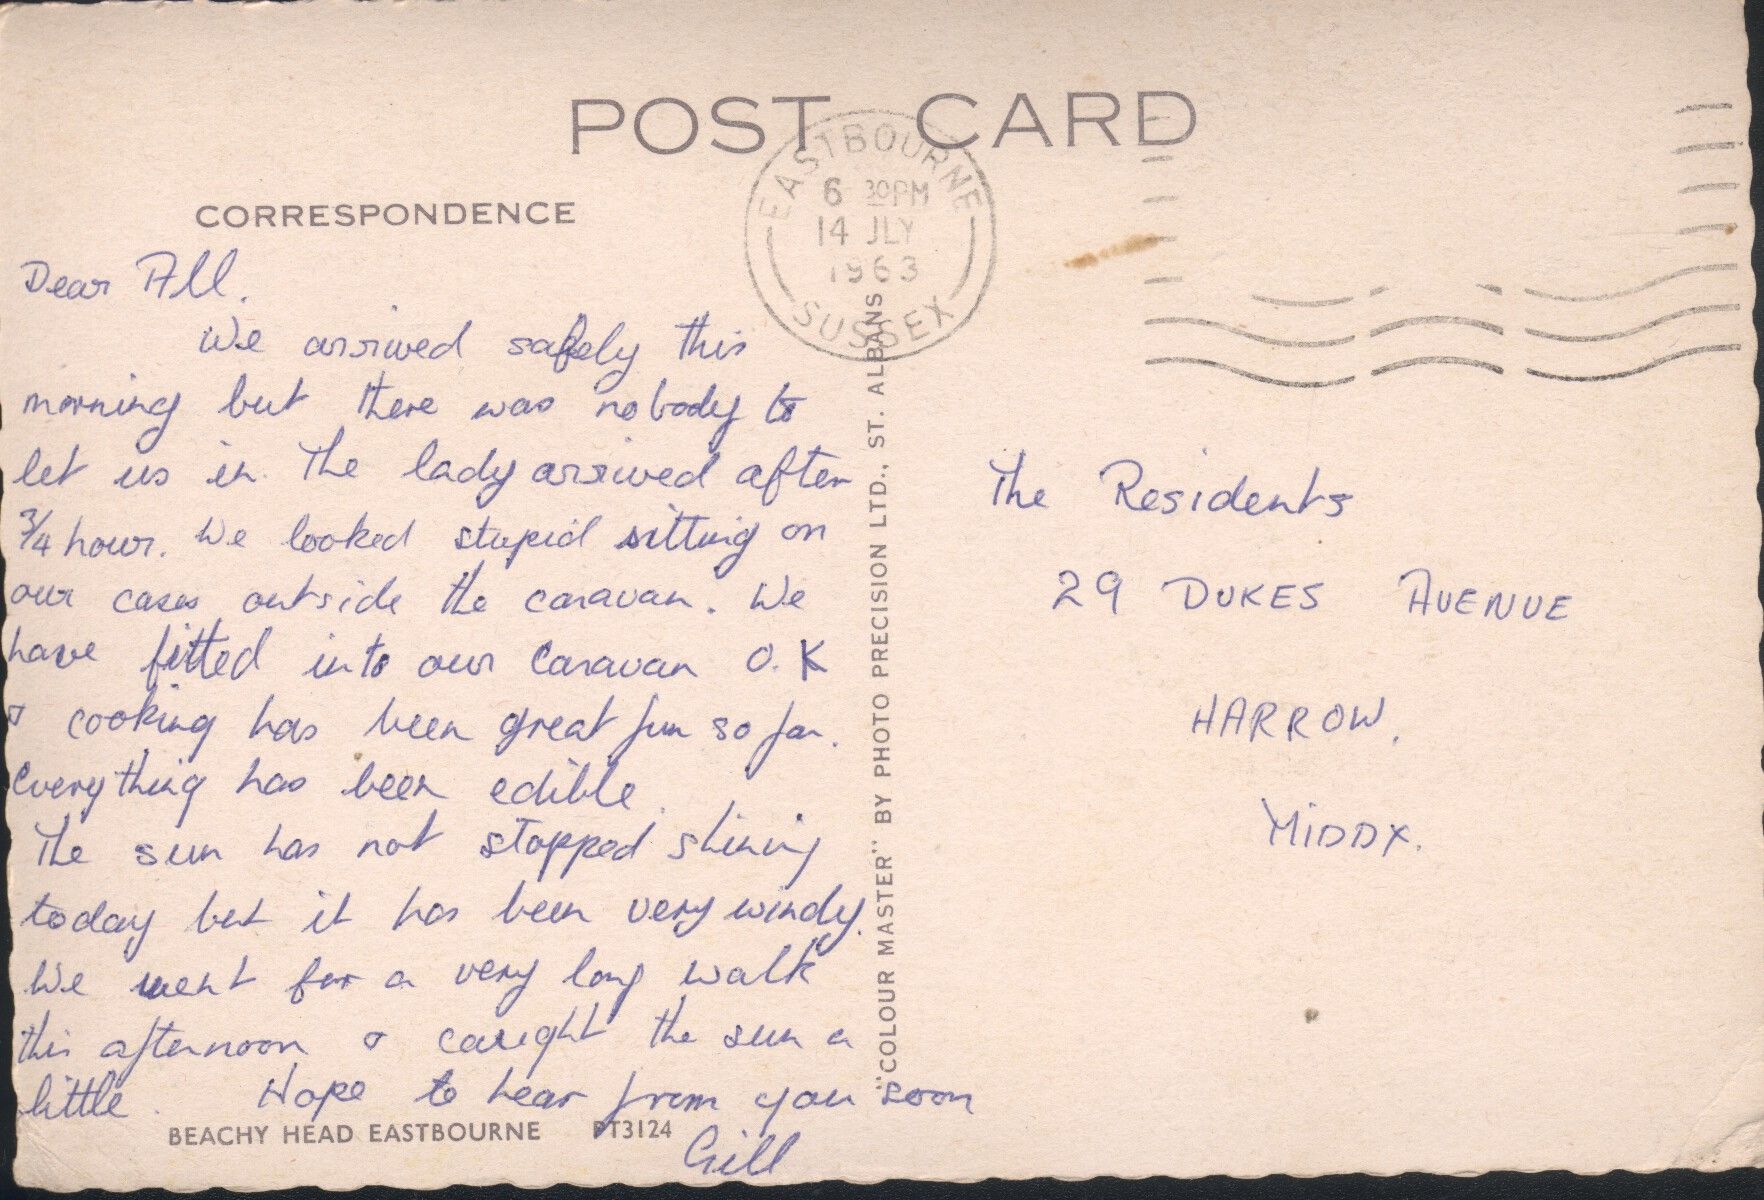 POST CARD
EASTBOURNE
6 30PM
14 JLY
1963
SUSSEX
CORRESPONDENCE
Dear All.
We arrived safely this
morning but there was nobody to
let us in. The lady arrived after
3/4 hour. We looked stupid sitting on
our cases outside the caravan. We
have fitted into our caravan O.K
& cooking has been great fun so far.
Everything has been edible.
The sun has not stopped shining
today but it has been very windy.
We went for a very long walk
this afternoon & caught the sun a
little. Hope to hear from you soon
Gill
BEACHY HEAD EASTBOURNE PT3124
"COLOUR MASTER" BY PHOTO PRECISION LTD., ST. ALBANS
The Residents
29 DUKES AVENUE
HARROW.
MIDDX.